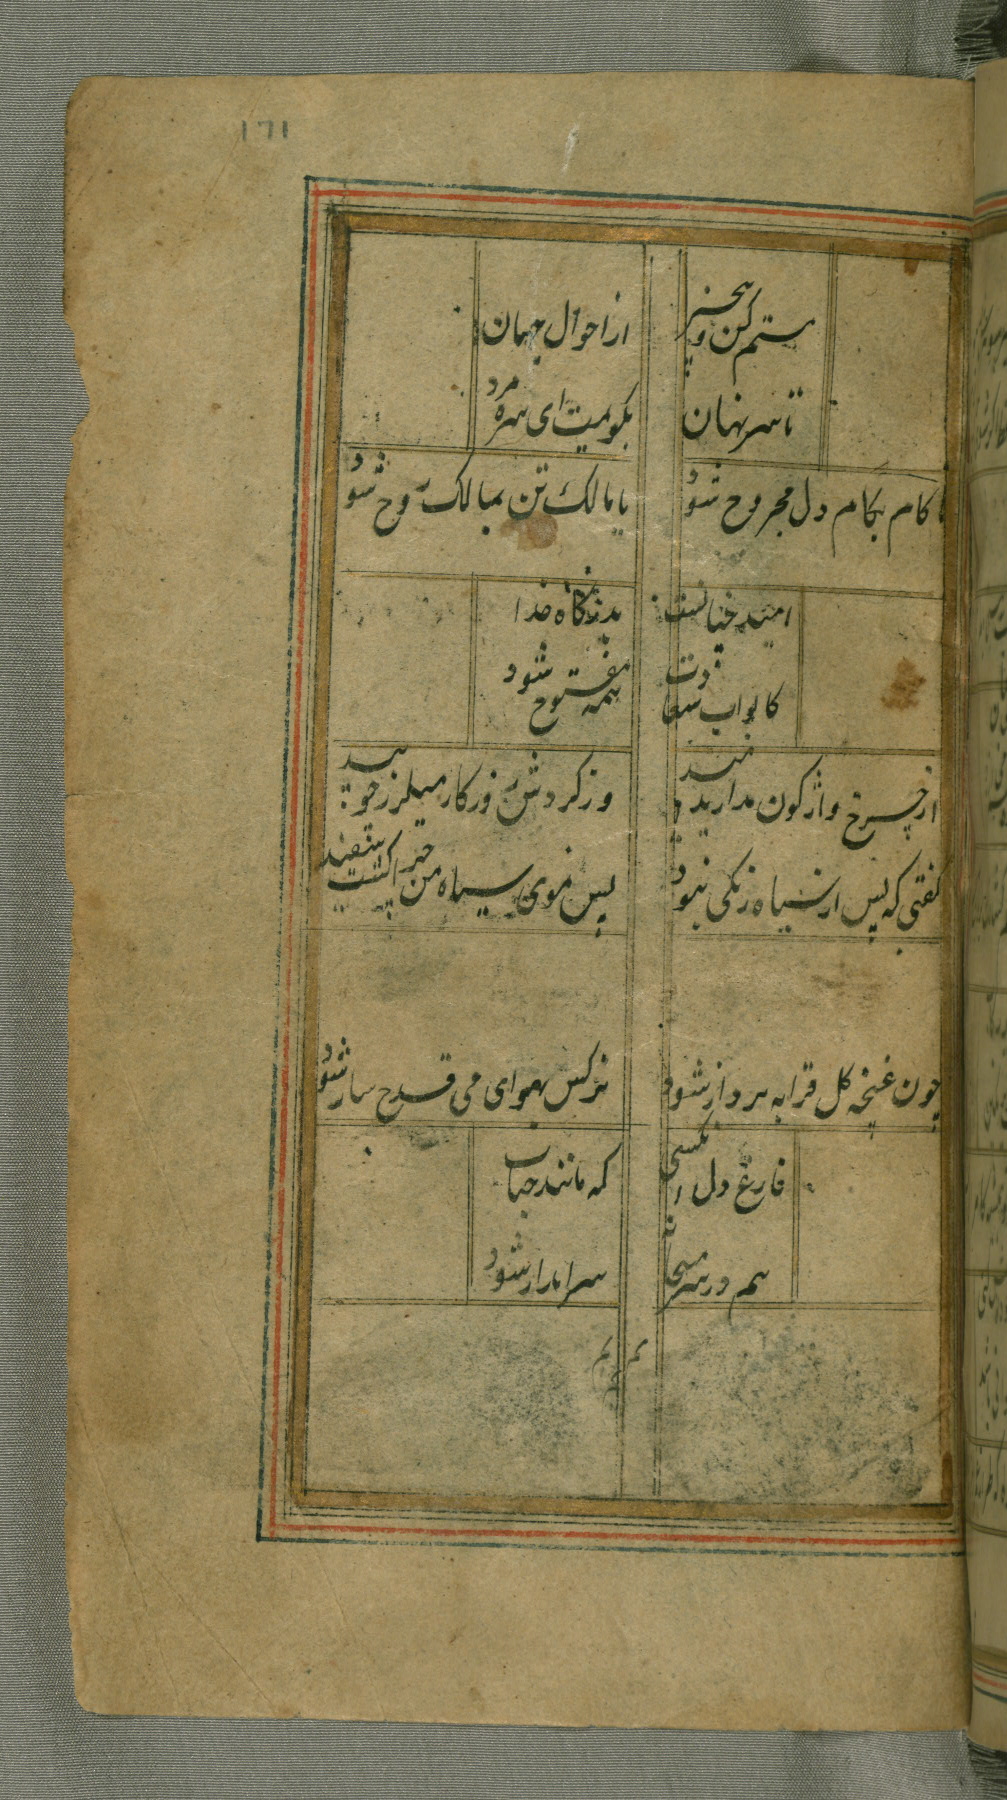 ۱۶۱
مستم کن و بیخبر از احوال جهان
تا سر نهان بگویمت ای سره مرد
تا کام بکام دل مجروح شود
یا مالک تن بمالک روح شود
امید چنانست بدرگاه خدا
کابواب سعادت همه مفتوح شود
از چرخ واژگون مدارید امید
وز گردش روزکار میلرز چو بید
گفتی که پس از سیاه رنگی نبود
پس موی سیاه من چرا گشت سفید
چون غنچه گل قرابه پرداز شود
نرگس بهوای می قدح ساز شود
فارغ دل کسی که مانند حباب
هم در سر میخانه سرانداز شود